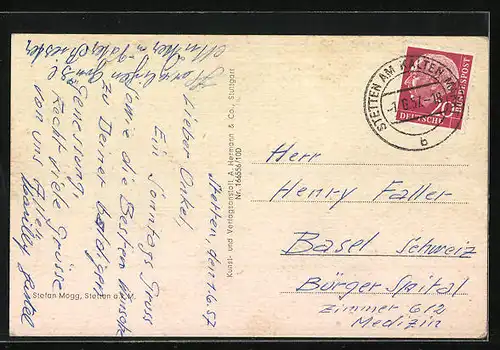 Stetten, den 1.6.57
Lieber Onkel,
Ein Sonntags Gruss
sowie die Besten Wünsche
zu Deiner baldigen
Genesung
Recht viele Grüsse
von uns Allen
Mutter u. Vater
Kunst- und Verlagsanstalt A. Hermann & Co., Stuttgart
Nr. 16656/10D
Stefan Mogg, Stetten a. k. M.
STETTEN AM KALTEN
b
DEUTSCHE BUNDESPOST
20
Herr
Henry Faller
Basel Schweiz
Bürger Spital
Zimmer 612
Medizin